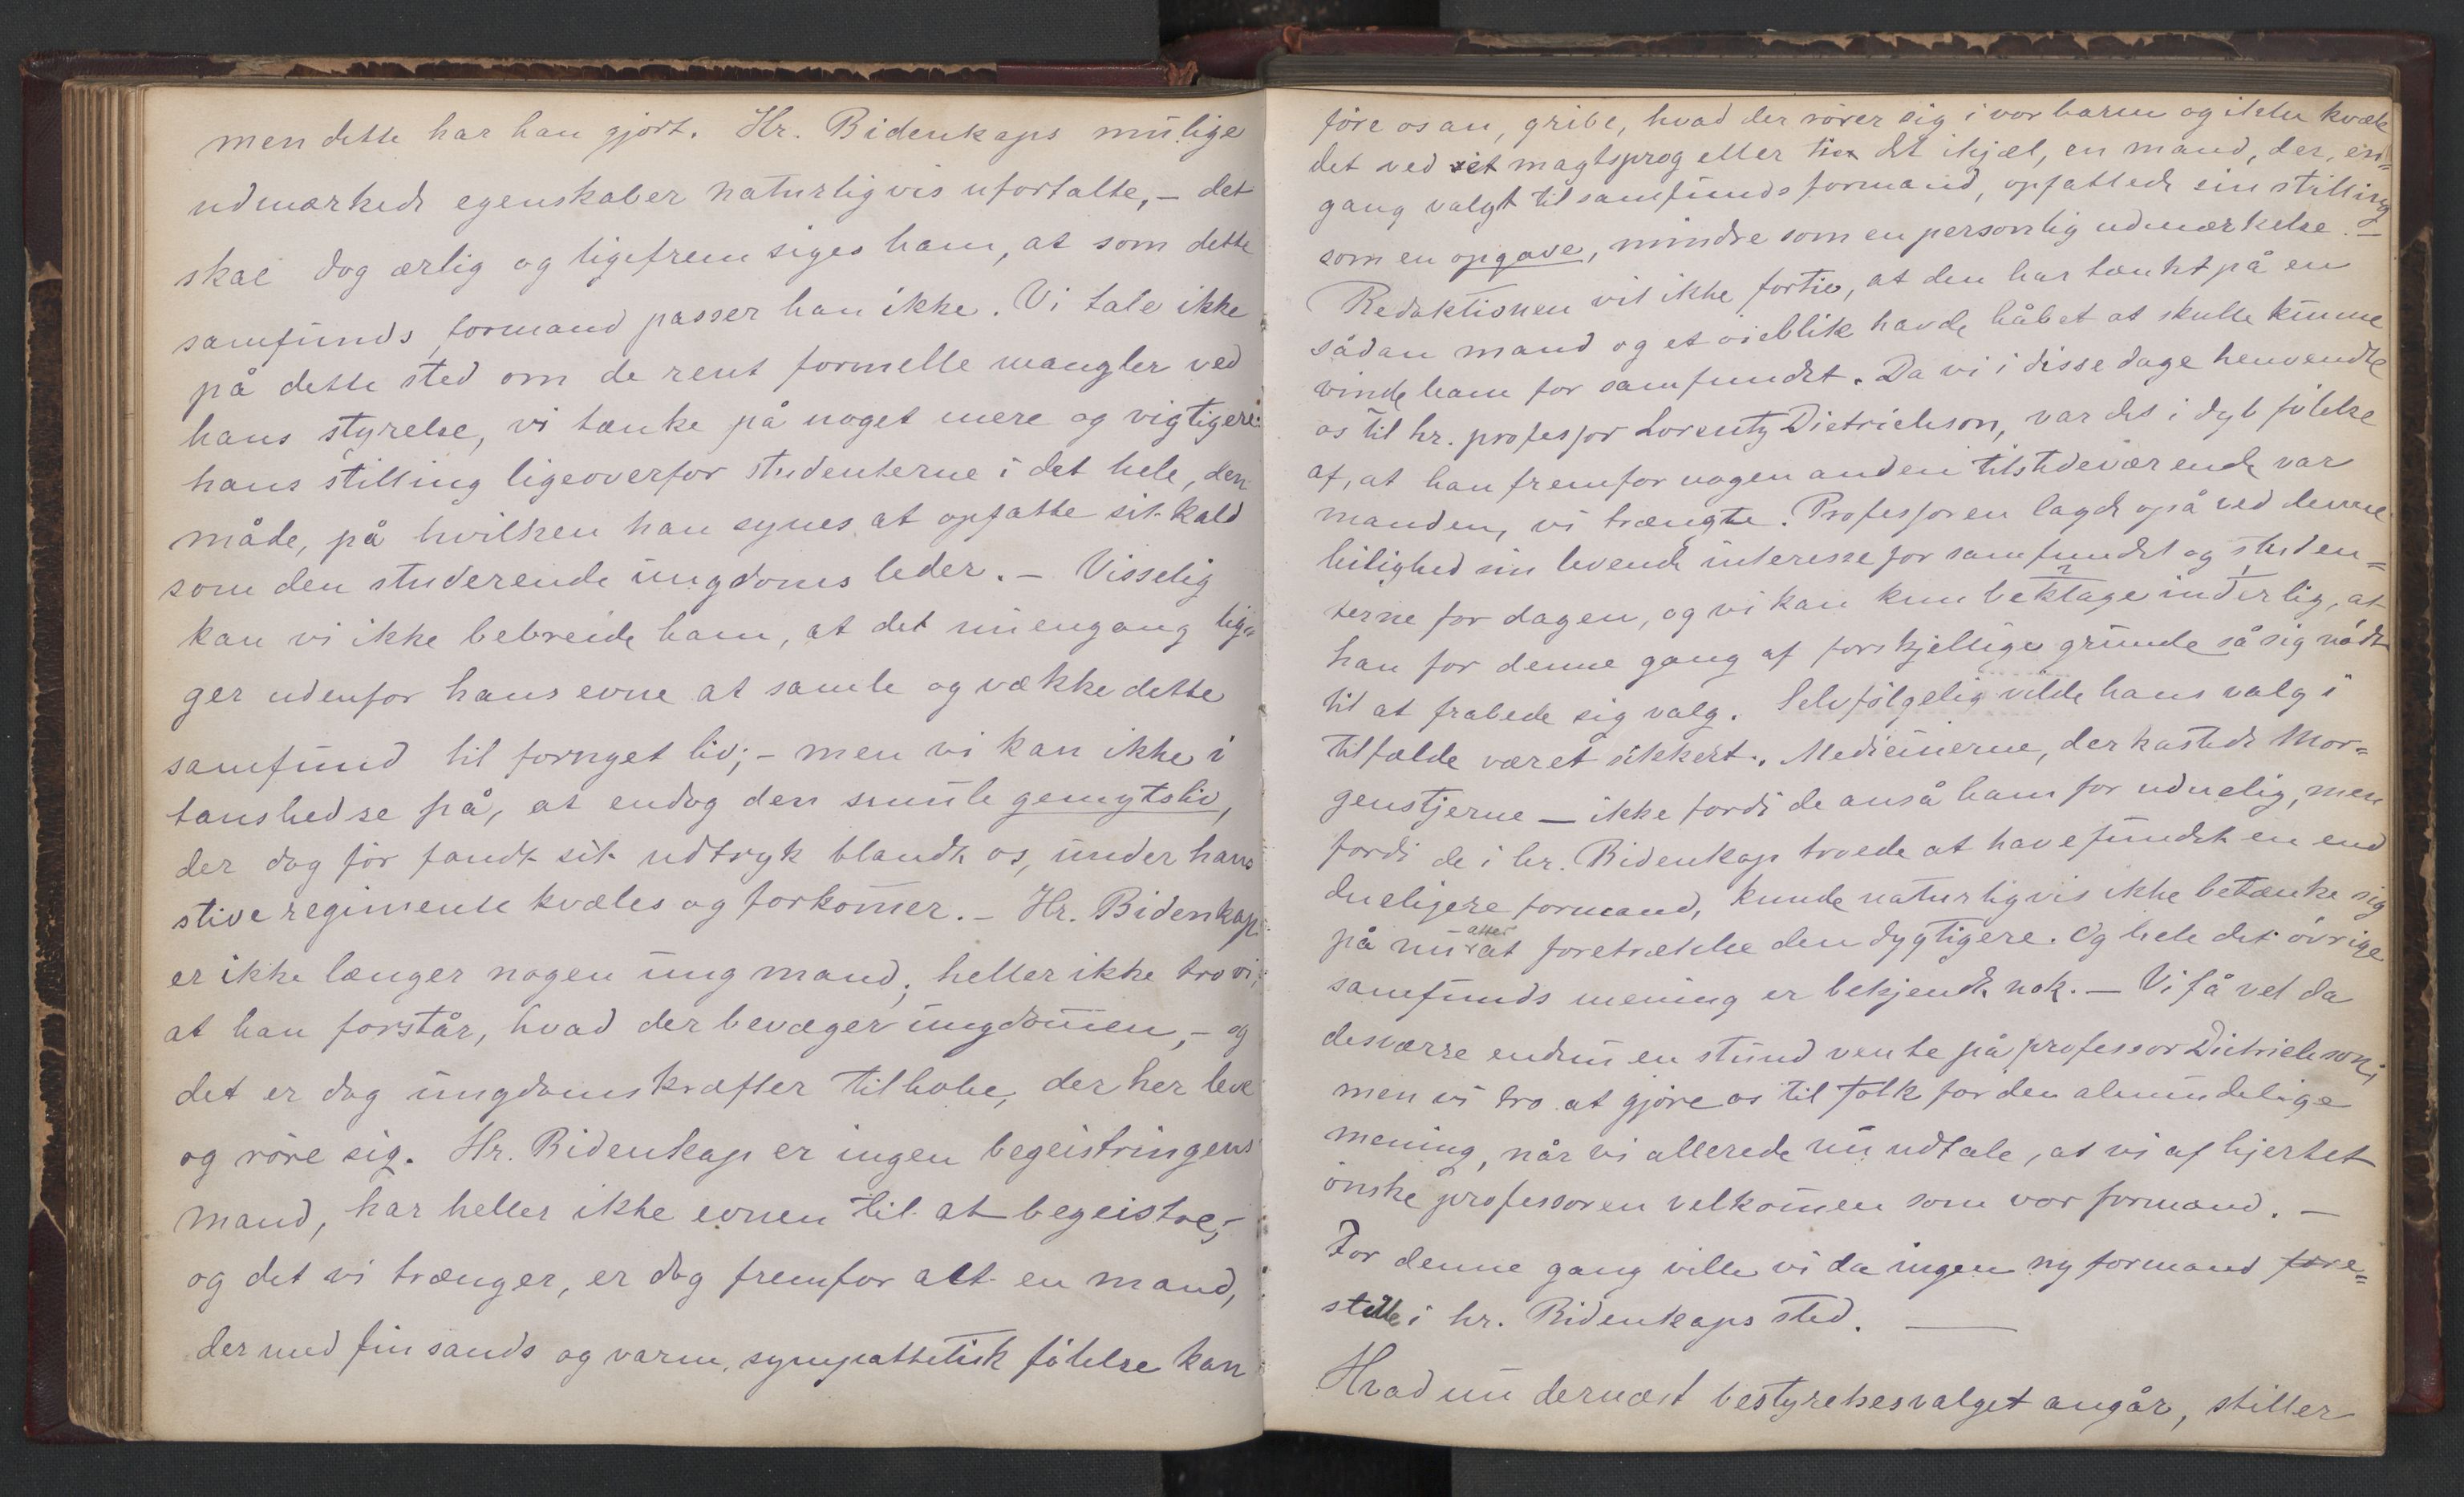 men dette har han gjort. Hr. Bidenkaps mulige
udmærkede egenskaber naturligvis ufortalte, – det
skal dog ærlig og ligefrem siges ham, at som dette
samfunds formand passer han ikke. Vi tale ikke
på dette sted om de rent formelle mangler ved
hans styrelse, vi tænke på noget mere og vigtigere:
hans stilling ligeoverfor studenterne i det hele, den
måde, på hvilken han synes at opfatte sit kald
som den studerende ungdoms leder. – Visselig
kan vi ikke bebreide ham, at det nu engang lig-
ger udenfor hans evne at samle og vække dette
samfund til fornyet liv; – men vi kan ikke i
taushed se på, at endog den smule gemytsliv,
der dog för fandt sit udtryk blandt os, under hans
stive regimente kvæles og forkommer. – Hr. Bidenkap
er ikke længer nogen ung mand; heller ikke tro vi,
at han forstår, hvad der bevæger ungdommen, – og
det er dog ungdomskræfter tilhobe, der her leve
og röre sig. Hr. Bidenkap er ingen begeistringens
mand, har heller ikke evnen til at begeistre, –
og det vi trænger, er dog fremfor alt en mand,
der med fin sands og varm, sympathetisk fölelse kan
före os an, gribe, hvad der rörer sig i vor barm og ikke kvæle
det ved et magtsprog eller tie det ihjæl, en mand, der, en=
gang valgt til samfundsformand, opfattede sin stilling
som en opgave, mindre som en personlig udmærkelse. –
Redaktionen vil ikke fortie, at den har tænkt på en
sådan mand og et öieblik havde håbet at skulle kunne
vinde ham for samfundet. Da vi i disse dage henvendte
os til hr. professor Lorentz Dietrichson, var det i dyb fölelse
af, at han fremfor nogen anden tilstedeværende var
manden, vi trængte. Professoren lagde også ved denne
leilighed sin levende interesse for samfundet og studen=
terne for dagen, og vi kan kun beklage inderlig, at
han for denne gang af forskjellige grunde så sig nödt
til at frabede sig valg. Selvfölgelig vilde hans valg i
tilfælde været sikkert. Medicinerne, der kastede Mor=
genstjerne – ikke fordi de anså ham for uduelig, men
fordi de i hr. Bidenkap troede at have fundet en end
dueligere formand, kunde naturligvis ikke betænke sig
på nu atter at foretrække den dygtigere. Og hele det övrige
samfunds mening er bekjendt nok. – Vi få vel da
desværre endnu en stund vente på professor Dietrichson;
men vi tro at gjöre os til tolk for den almindelige
mening, når vi allerede nu udtale, at vi af hjertet
önske professoren velkommen som vor formand. –
For denne gang ville vi da ingen ny formand fore=
stille i hr. Bidenkaps sted. —
Hvad nu dernæst bestyrelsesvalget angår, stiller